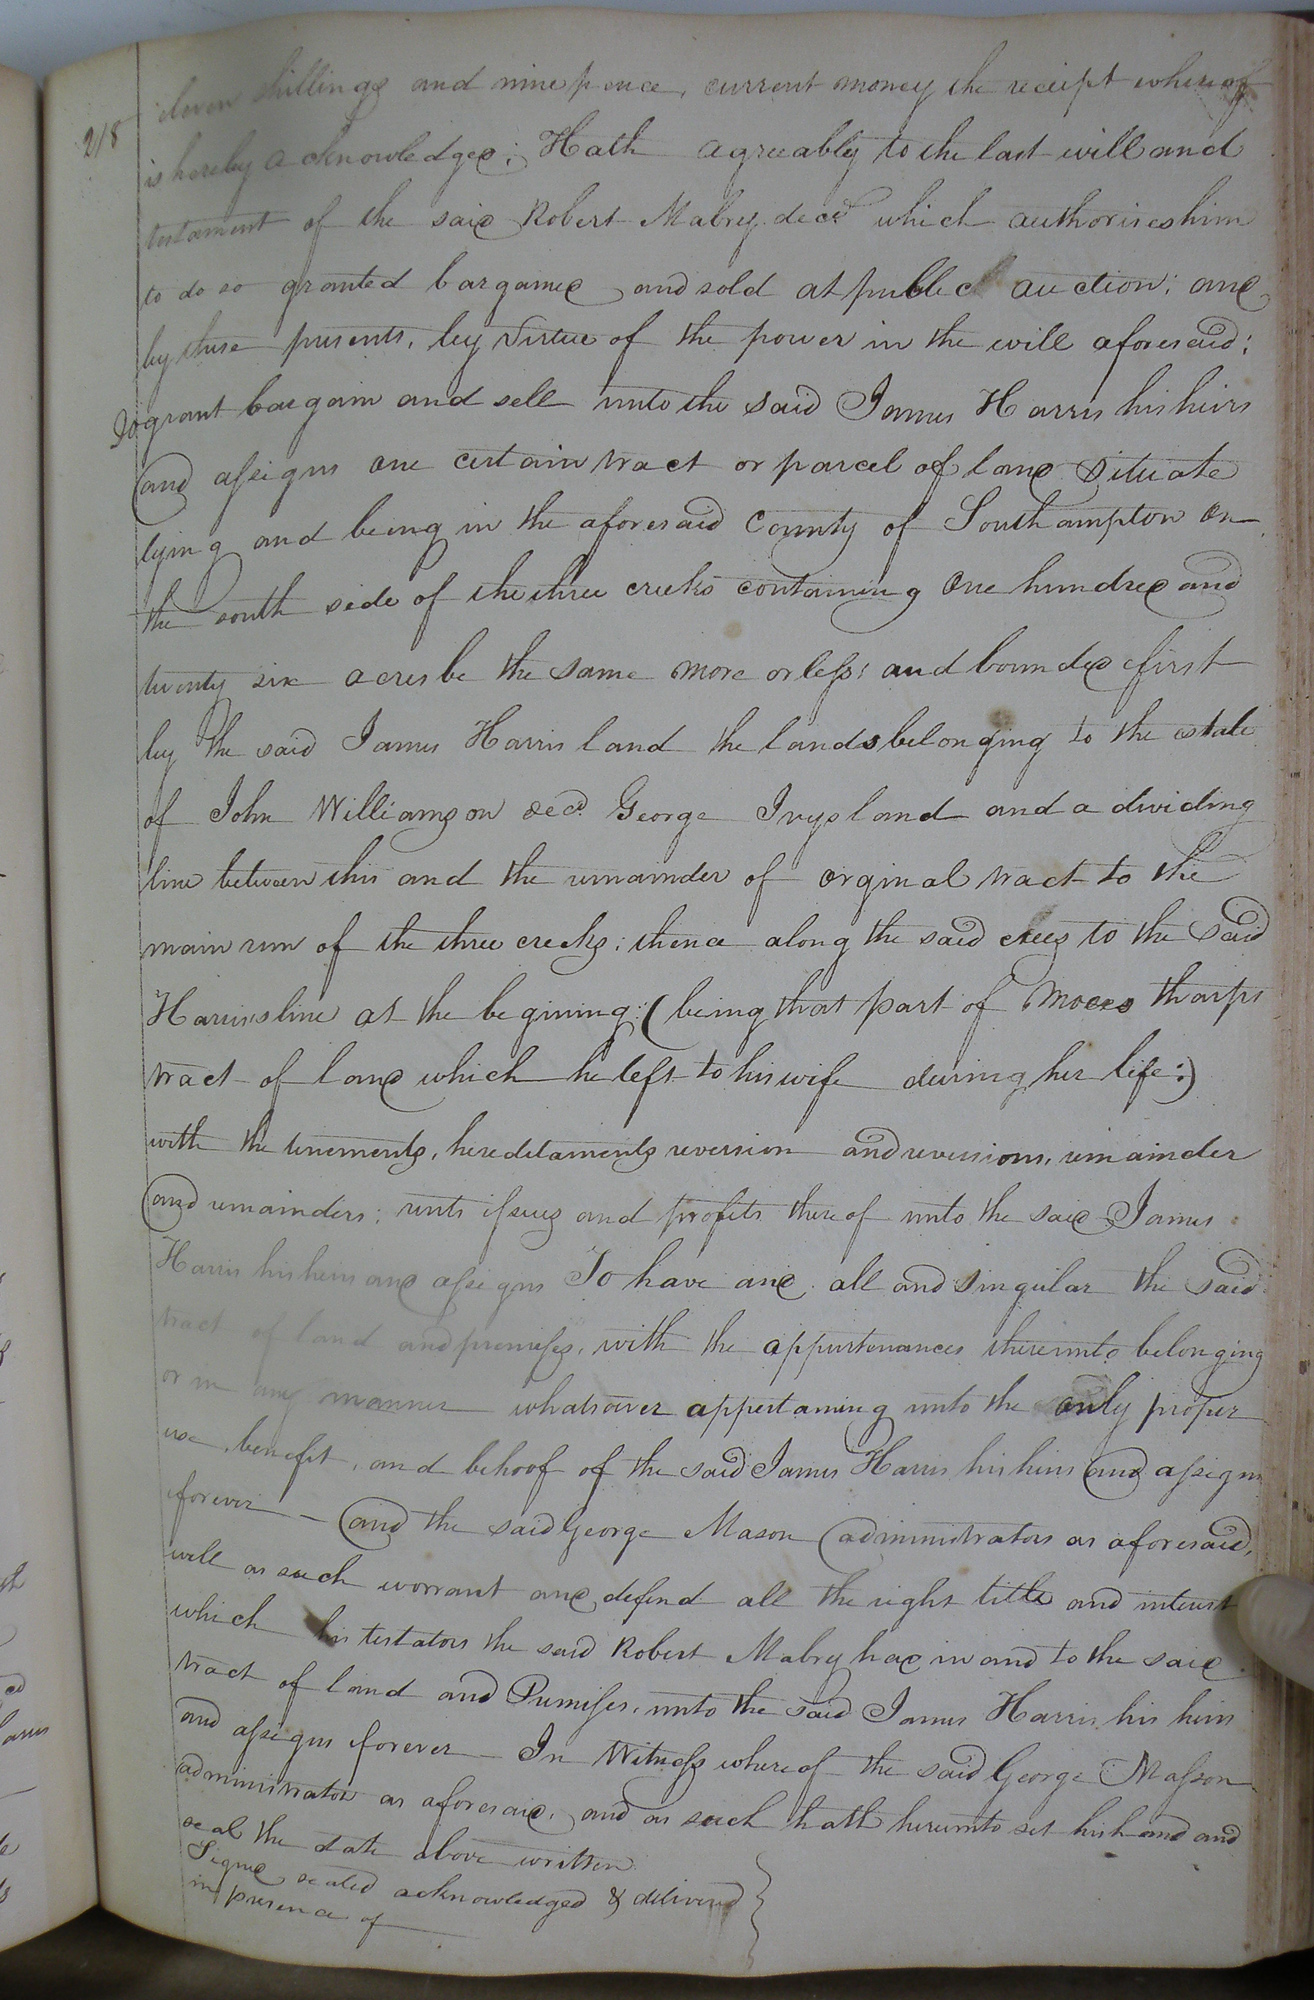 218
eleven shillings and ninepence, current money the receipt whereof
is hereby acknowledged; Hath agreeably to the last will and
testament of the said Robert Mabry decd which authorises him
to do so granted bargained and sold at public auction; and
by these presents, by virtue of the power in the will aforesaid;
Do grant bargain and sell unto the said James Harris his heirs
and assigns one certain tract or parcel of land situate
lying and being in the aforesaid County of Southampton on
the south side of the three creeks containing One hundred and
twenty six acres be the same more or less; and bounded first
by the said James Harris land the lands belonging to the estate
of John Williamson decd. George Ivys land and a dividing
line between this and the remainder of orginal tract to the
main run of the three creeks; thence along the said to the said
Harris line at the begining: (being that part of Moses tharps
tract of land which he left to his wife during her life:)
with the tenements, hereditaments reversion and reversions, remainder
and remainders; rents issues and profits thereof unto the said James
Harris his heirs and assigns To have and all and singular the said
tract of land and premises, with the appurtenances thereunto belonging
or in any manner whatsoever appertaining unto the only proper
use, benefit, and behoof of the said James Harris his heirs and assigns
forever – and the said George Mason administrator as aforesaid,
will as such warrant and defend all the right title and interest
which his testators the said Robert Mabry had in and to the said
tract of land and Premises, unto the said James Harris his heirs
and assigns forever – In Witness whereof the said George Masson
administrator as aforesaid, and as such hath hereunto set his hand and
seal the date above written
Signed sealed acknowledged & delivered
in presence of